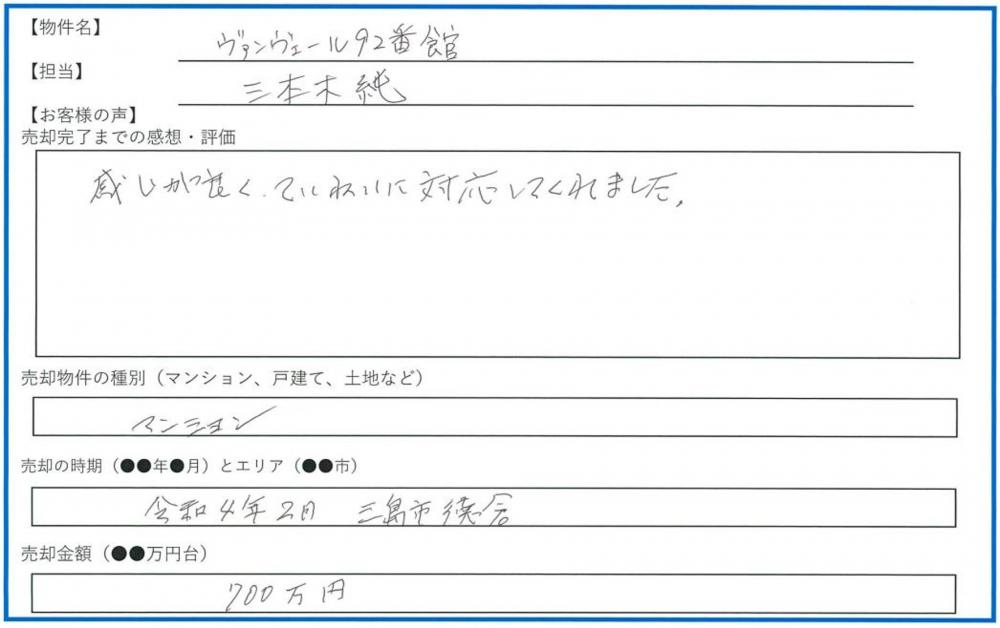 【物件名】
ヴァンヴェール92番館
【担当】
三本木 純
【お客様の声】
売却完了までの感想・評価
感じが良く、ていねいに対応してくれました。
売却物件の種別（マンション、戸建て、土地など）
マンション
売却の時期（●●年●月）とエリア（●●市）
令和4年2月 三島市徳倉
売却金額（●●万円台）
700万円